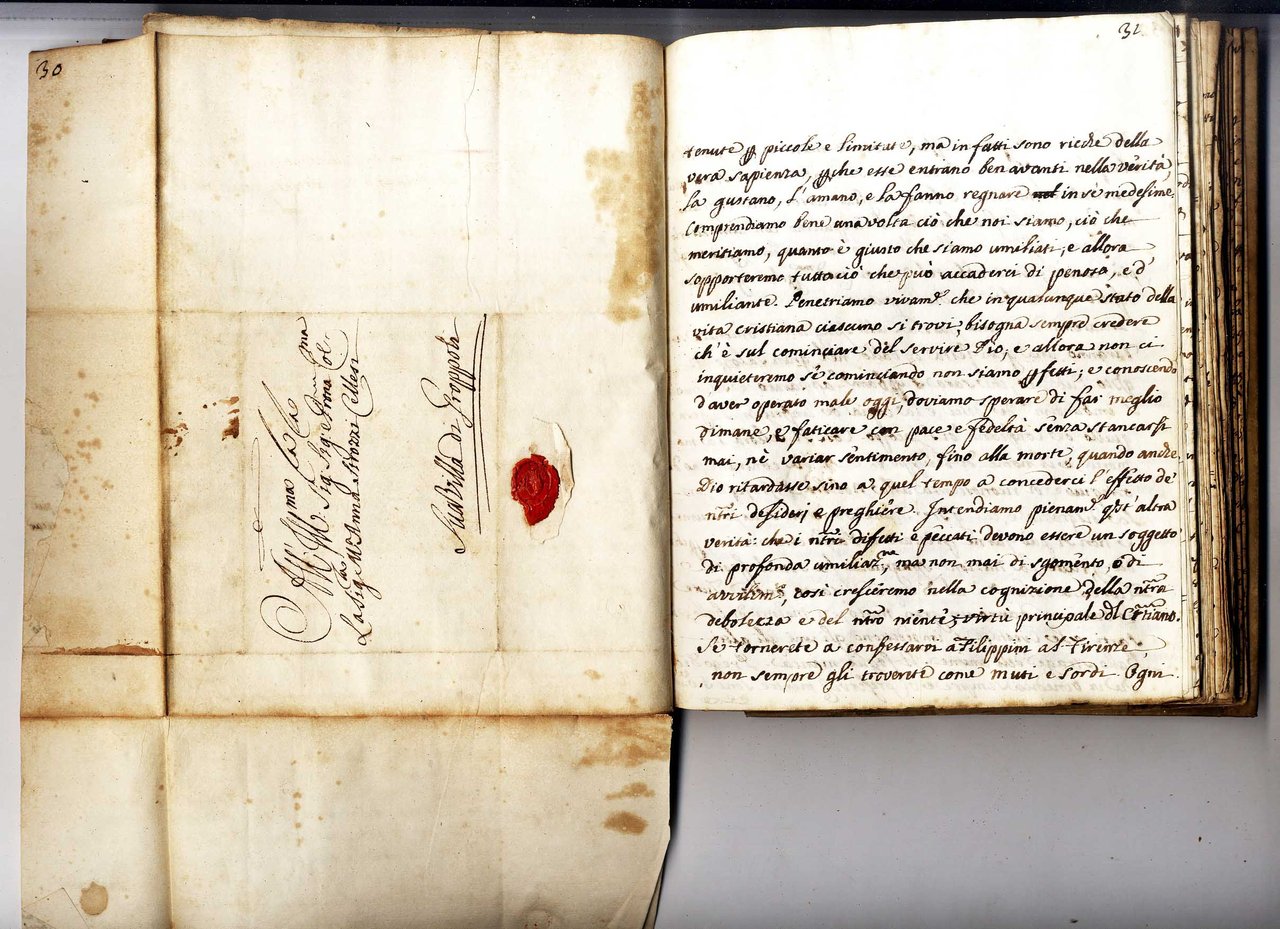 30
All' Ill.ma
Ill.ma Sig. Sig. e Prona Col.ma
La Sig.ra M.a Anna Strozzi Cellesi
Sua Villa di Groppoli
31
tenute p piccole e limitate, ma in fatti sono ricche della
vera sapienza, pche esse entrano ben avanti nella verità,
la gustano, l'amano, e la fanno regnare nel in sè medesime.
Comprendiamo bene una volta ciò che noi siamo, ciò che
meritiamo, quanto è giusto che siamo umiliati, e allora
sopporteremo tutto ciò che può accaderci di penoso, e d'
umiliante. Penetriamo vivam.e che in qualunque stato della
vita cristiana ciascuno si trovi, bisogna sempre credere
ch'è sul cominciare del servire Dio, e allora non ci
inquieteremo se cominciando non siamo pfetti; e conoscendo
d'aver operato male oggi, doviamo sperare di far meglio
dimane, e faticare con pace e fedeltà senza stancarsi
mai, nè variar sentimento, fino alla morte, quando anche
Dio ritardasse sino a quel tempo a concederci l'effetto de'
ntri desiderj e preghiere. Intendiamo pienam.e qst'altra
verità: che i ntri difetti e peccati devono essere un soggetto
di profonda umiliaz.ne, ma non mai di sgomento, o di
avvilim.o, così cresceremo nella cognizione della ntra
debolezza e del ntro niente, virtù principale dl Cristiano.
Se tornerete a confessarvi a Filippini a Firenze
non sempre gli troverete come muti e sordi. Ogni